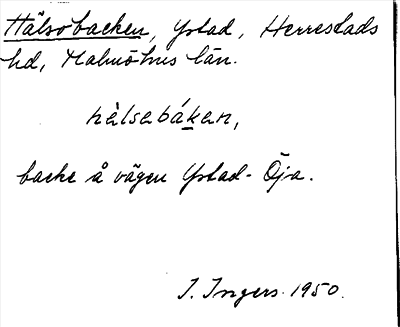 Hälsobacken, Ystad, Herrestads
hd, Malmöhus län.
hàlsebáken,
backe å vägen Ystad - Öja.
I. Ingers 1950.